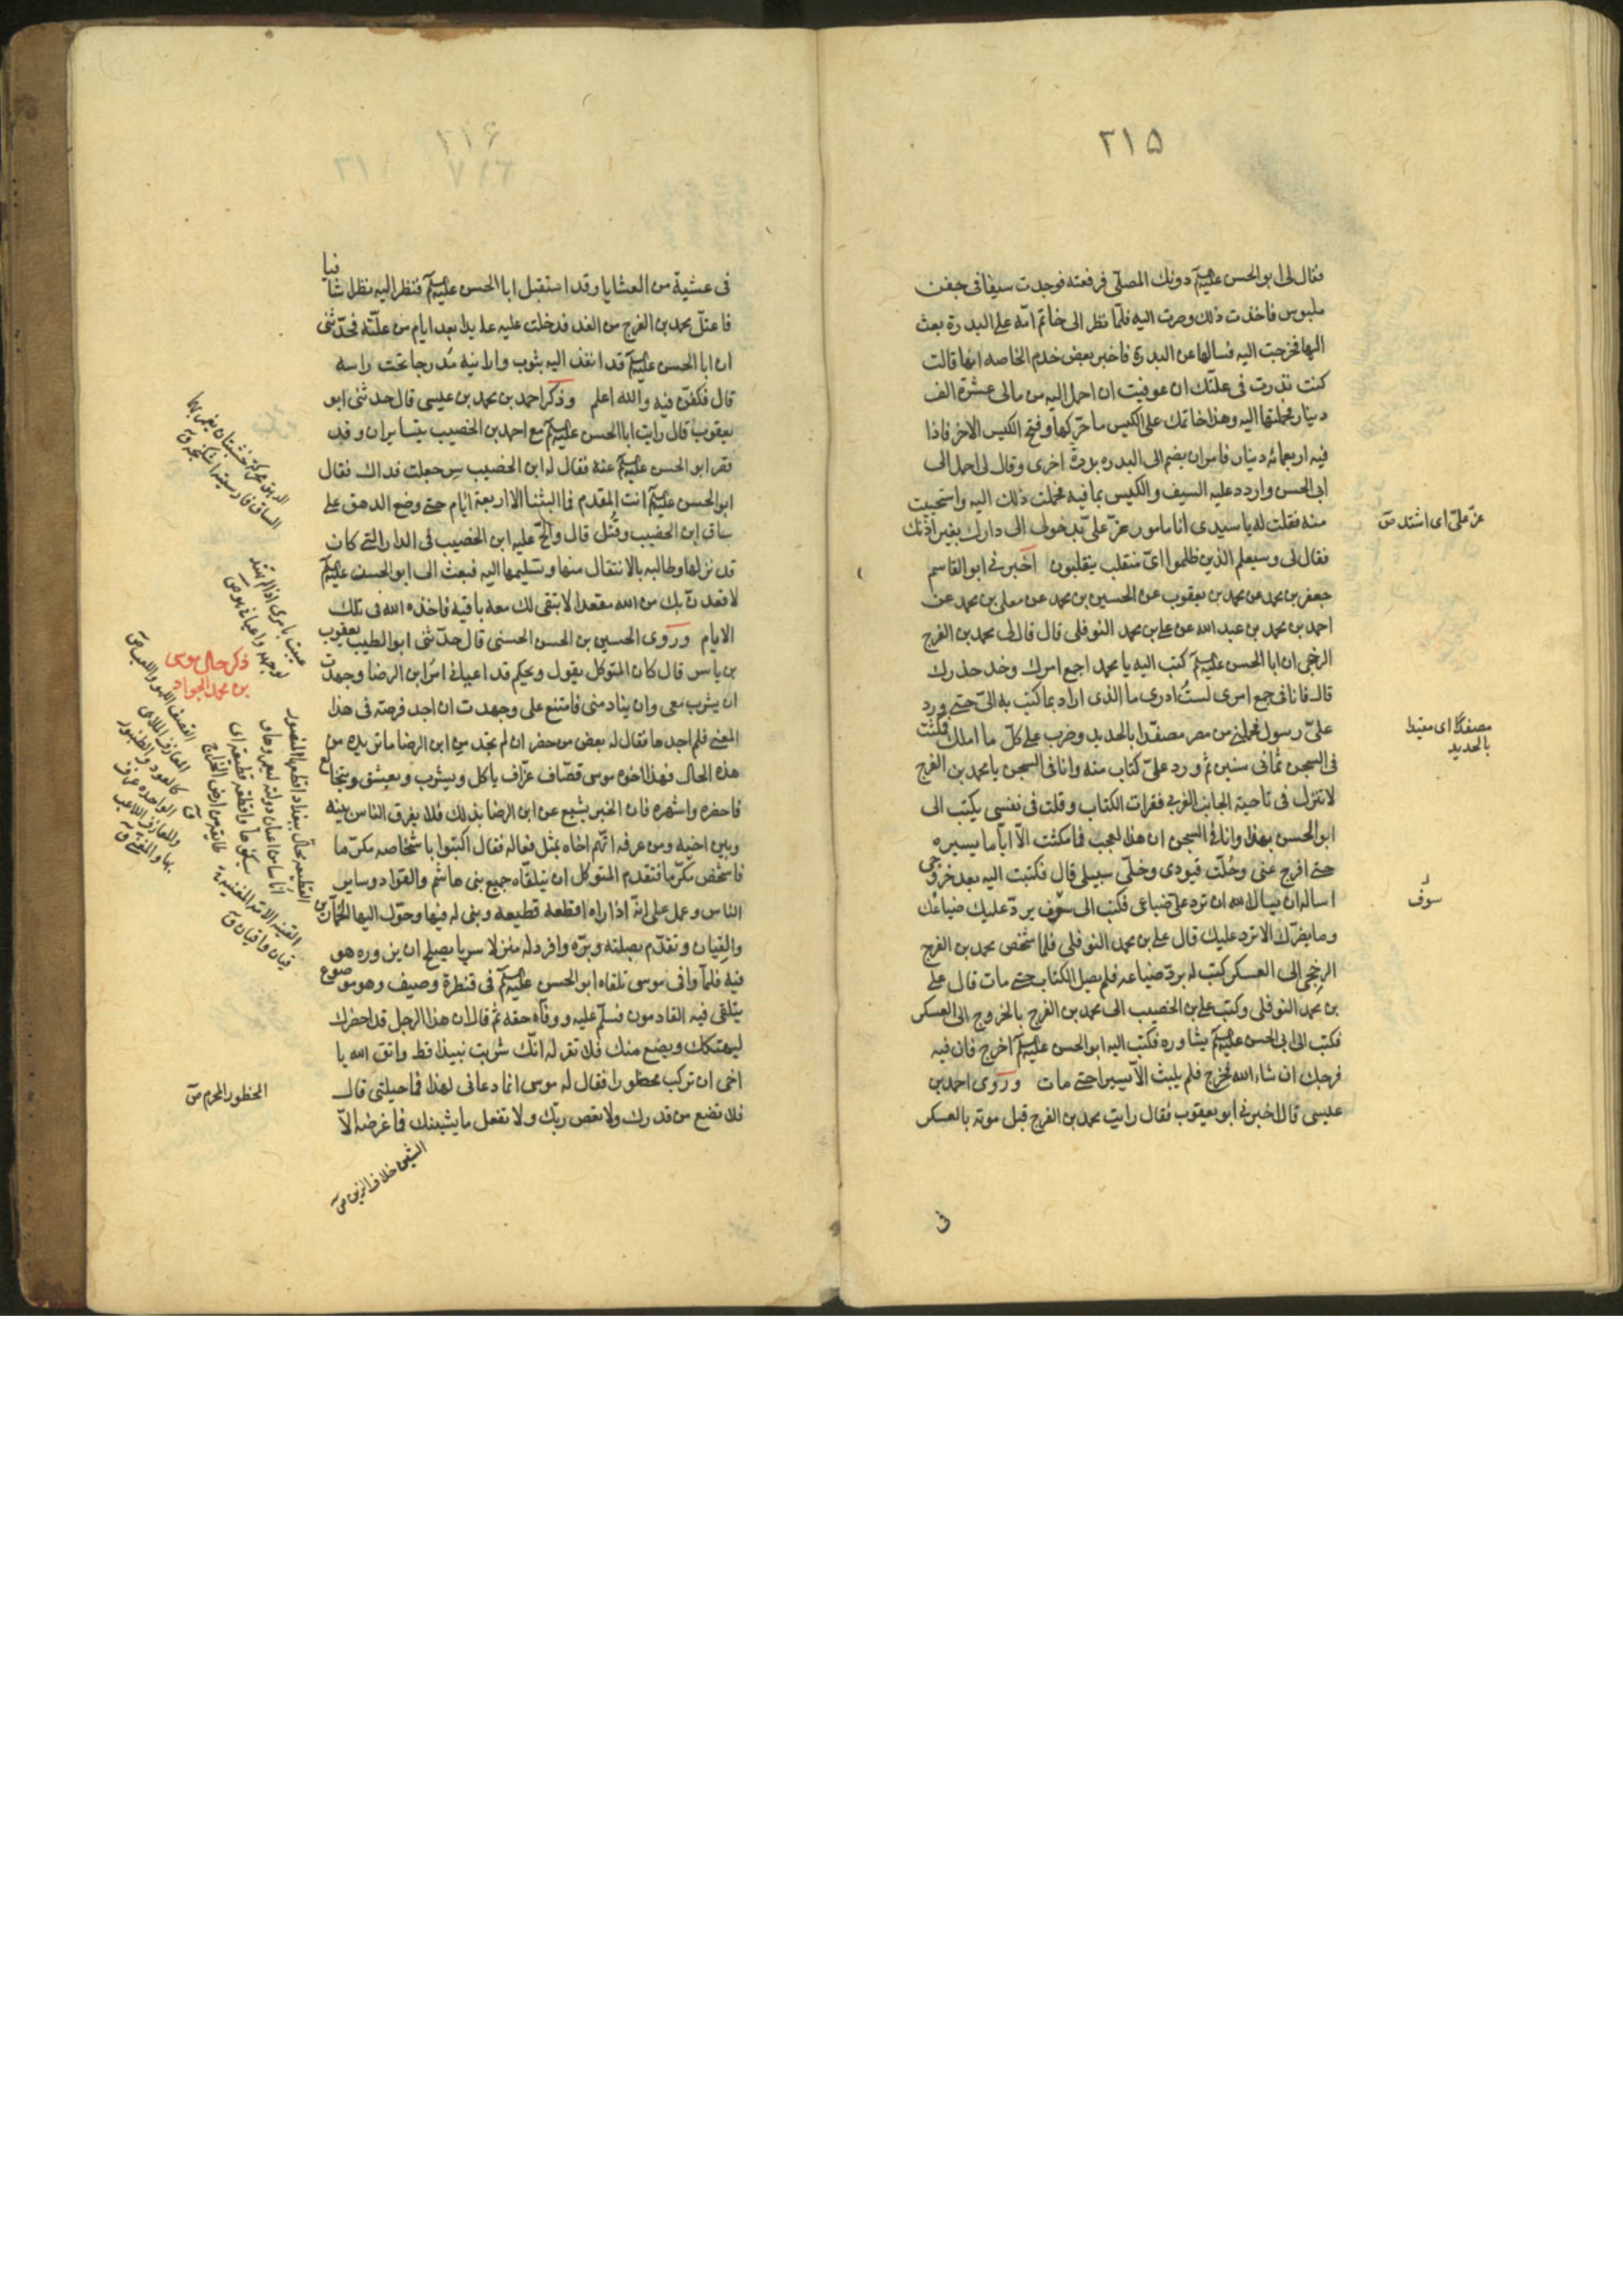 ٢١۵
فقال لى ابو الحسن عليه السلم دونك المصلّى فرفعته فوجدت سيفا فى جفن
ملبوس فاخذت ذلك وصرت اليه فلمّا نظر الى خاتم امّه على البدرة بعث
اليها فخرجت اليه فسالها عن البدرة فاخبر بعض خدم الخاصه انها قالت
كنت نذرت فى علّتك ان عوفيت ان احمل اليه من مالى عشرة الف
دينار فحملتها اليه وهذا خاتمك على الكيس ما حرّكها وفتح الكيس الاخر فاذا
فيه اربعمائه دينار فامر ان يضم الى البدره بدرة اخرى وقال لى احمل الى
ابى الحسن واردد عليه السيف والكيس بما فيه فحملت ذلك اليه واستحييت
منه فقلت له يا سيدى انا مامور عزّ علىّ بدخولى الى دارك بغير اذنك
فقال لى وسيعلم الذين ظلموا اىّ منقلب ينقلبون اخبرنى ابو القاسم
جعفر بن محمد عن محمد بن يعقوب عن الحسين بن محمد عن معلى بن محمد عن
احمد بن محمد بن عبد الله عن على بن محمد النوفلى قال قال لى محمد بن الفرج
الرخجى ان ابا الحسن عليه السلم كتب اليه يا محمد اجمع امرك وخذ حذرك
قال فانا فى جمع امرى لستُ ادرى ما الذى اراد بما كتب به الىّ حتى ورد
علىّ رسول فحملنى من مصر مصفّدا بالحديد وضرب على كلّ ما املك فمكثت
فى السجن ثمانى سنين ثم ورد علىّ كتاب منه وانا فى السجن يا محمد بن الفرج
لا تنزل فى ناحية الجانب الغربي فقرات الكتاب وقلت فى نفسى يكتب الى
ابو الحسن بهذا وانا فى السجن ان هذا لعجب فما مكثت الّا اياما يسيره
حتى افرج عنى وحُلّت قيودى وخلّى سبيلى قال فكتبت اليه بعد خروجى
اساله ان يسال الله ان ترد علىّ ضياعى فكتب الى سوف يردّ عليك ضياعك
وما يضرّك الا ترد عليك قال على بن محمد النوفلى فلما شخص محمد بن الفرج
الرخجى الى العسكر كتب له بردّ ضياعه فلم يصل الكتاب حتى مات قال على
بن محمد النوفلى وكتب على بن الخصيب الى محمد بن الفرج بالخروج الى العسكر
فكتب الى ابى الحسن عليه السلم يشاوره فكتب اليه ابو الحسن عليه السلم اخرج فان فيه
فرجك ان شاء الله فخرج فلم يلبث الّا يسيرا حتى مات وروى احمد بن
عيسى قال اخبرنى ابو يعقوب فقال رايت محمد بن الفرج قبل موته بالعسكر
فى
عزّ علىّ اى اشتد ص
مصفدًا اى مقيدا
بالحديد
سوف
٢١۶
فى عشية من العشايا وقد استقبل ابا الحسن عليه السلم فنظر اليه نظرا شافيا
فاعتلّ محمد بن الفرج من الغد فدخلت عليه عايدا بعد ايام من علّته فحدّثنى
ان ابا الحسن عليه السلم قد انفذ اليه بثوب وارانيه مُدرجا تحت راسه
قال فكفّن فيه والله اعلم وذكر احمد بن محمد بن عيسى قال حدثنى ابو
يعقوب قال رايت ابا الحسن عليه السلم مع احمد بن الخصيب يتسايران وقد
قصر ابو الحسن عليه السلم عنه فقال له ابن الخصيب سِر جعلت فداك فقال
ابو الحسن عليه السلم انت المقدم فما لبثنا الا اربعة ايّام حتى وضع الدهق على
ساق ابن الخصيب وقُتل قال والحّ عليه ابن الخصيب فى الدار التى كان
قد نزلها وطالبه بالانتقال منها وتسليمها اليه فبعث الى ابو الحسن عليه السلم
لاقعدنّ بك من الله مقعدا لا تبقى لك معه باقية فاخذه الله فى تلك
الايام وروى الحسين بن الحسن الحسنى قال حدّثنى ابو الطيب يعقوب
بن ياسر قال كان المتوكل يقول ويحكم قد اعيانى امر ابن الرضا وجهدت
ان يشرب معى وان ينادمنى فامتنع على وجهدت ان اجد فرصة فى هذا
المعنى فلم اجدها فقال له بعض من حضر ان لم تجد من ابن الرضا ما تريده من
هذه الحال فهذا اخوه موسى قصّاف عزّاف ياكل ويشرب ويعشق ويتخالع
فاحضره واشهره فان الخبر يشيع عن ابن الرضا بذلك فلا يفرق الناس بينه
وبين اخيه ومن عرفه اتّهم اخاه بمثل فعاله فقال اكتبوا باشخاصه مكرّما
فاشخص مكرّما فتقدم المتوكل ان يتلقّاه جميع بنى هاشم والقواد وساير
الناس وعمل على انّه اذا راه اقطعه قطيعه وبنى له فيها وحوّل اليها الخمّارين
والقيان وتقدّم بصلته وبرّه وافرد له منزلا سريا يصلح ان يزوره هو
فيه فلمّا وافى موسى تلقاه ابو الحسن عليه السلم فى قنطرة وصيف وهو موضع
يتلقى فيه القادمون فسلّم عليه ووفّاه حقه ثم قال ان هذا الرجل قد احضرك
ليهتكك ويضع منك فلا تقر له انّك شربت نبيذا قط واتق الله يا
اخى ان تركب محظورا فقال له موسى انما دعانى لهذا فما حيلتى قال
فلا تضع من قدرك ولا تعص ربّك ولا تفعل ما يشينك فما غرضه الّا
الشين خلاف الزين ص
ذكر حال موسى
بن محمد الجواد
المحظور المحرم ص